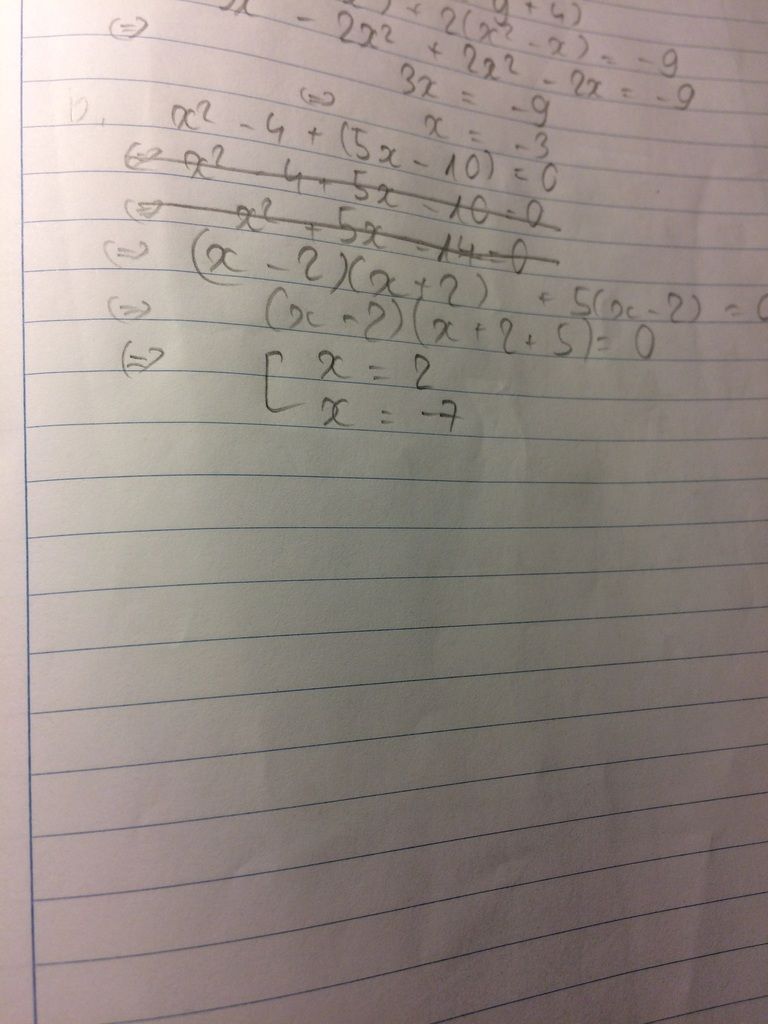 ) + 2(x² - x) = -9
⇔ - 2x² + 2x² - 2x = -9
3x = -9
⇔ x = -3
b. x² - 4 + (5x - 10) = 0
⇔ x² - 4 + 5x - 10 = 0
⇔ x² + 5x - 14 = 0
⇔ (x - 2)(x + 2) + 5(x - 2) = 0
⇔ (x - 2)(x + 2 + 5) = 0
⇔ [ x = 2
x = -7